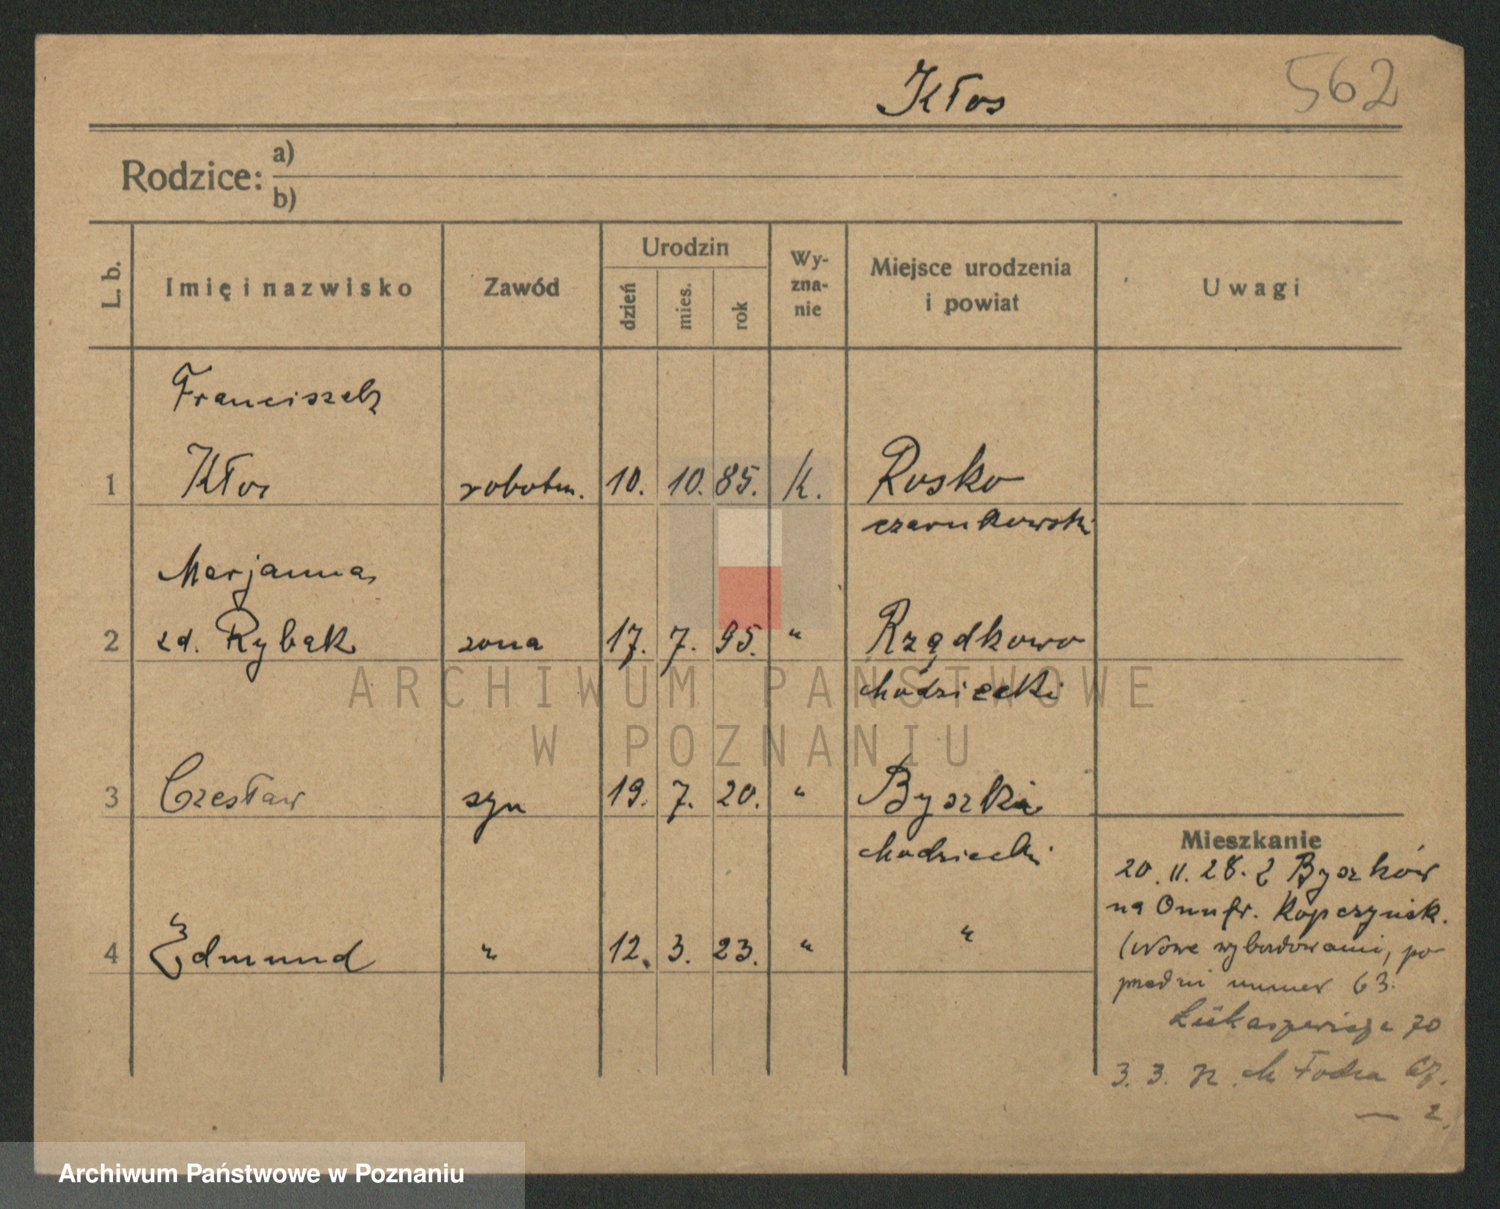 Kłos
562
Rodzice: a)
b)
L. b.
Imię i nazwisko
Zawód
Urodzin
dzień
mies.
rok
Wy-
zna-
nie
Miejsce urodzenia
i powiat
Uwagi
Franciszek
1 Kłos robotn. 10. 10. 85. k. Rosko
czarnkowski
Marjanna
2 zd. Rybak żona 17. 7. 95. " Rządkowo
chodzieski
3 Czesław syn 19. 7. 20. " Byszki
chodzieski
4 Edmund " 12. 3. 23. " "
Mieszkanie
20. 11. 28. z Byszków
na Onufr. Kopczyńsk.
(Nowe wybudowanie, po-
przedni numer 63.
Łukaszewicza 70
3. 3. 32.
2.
ARCHIWUM PAŃSTWOWE
W POZNANIU
Archiwum Państwowe w Poznaniu